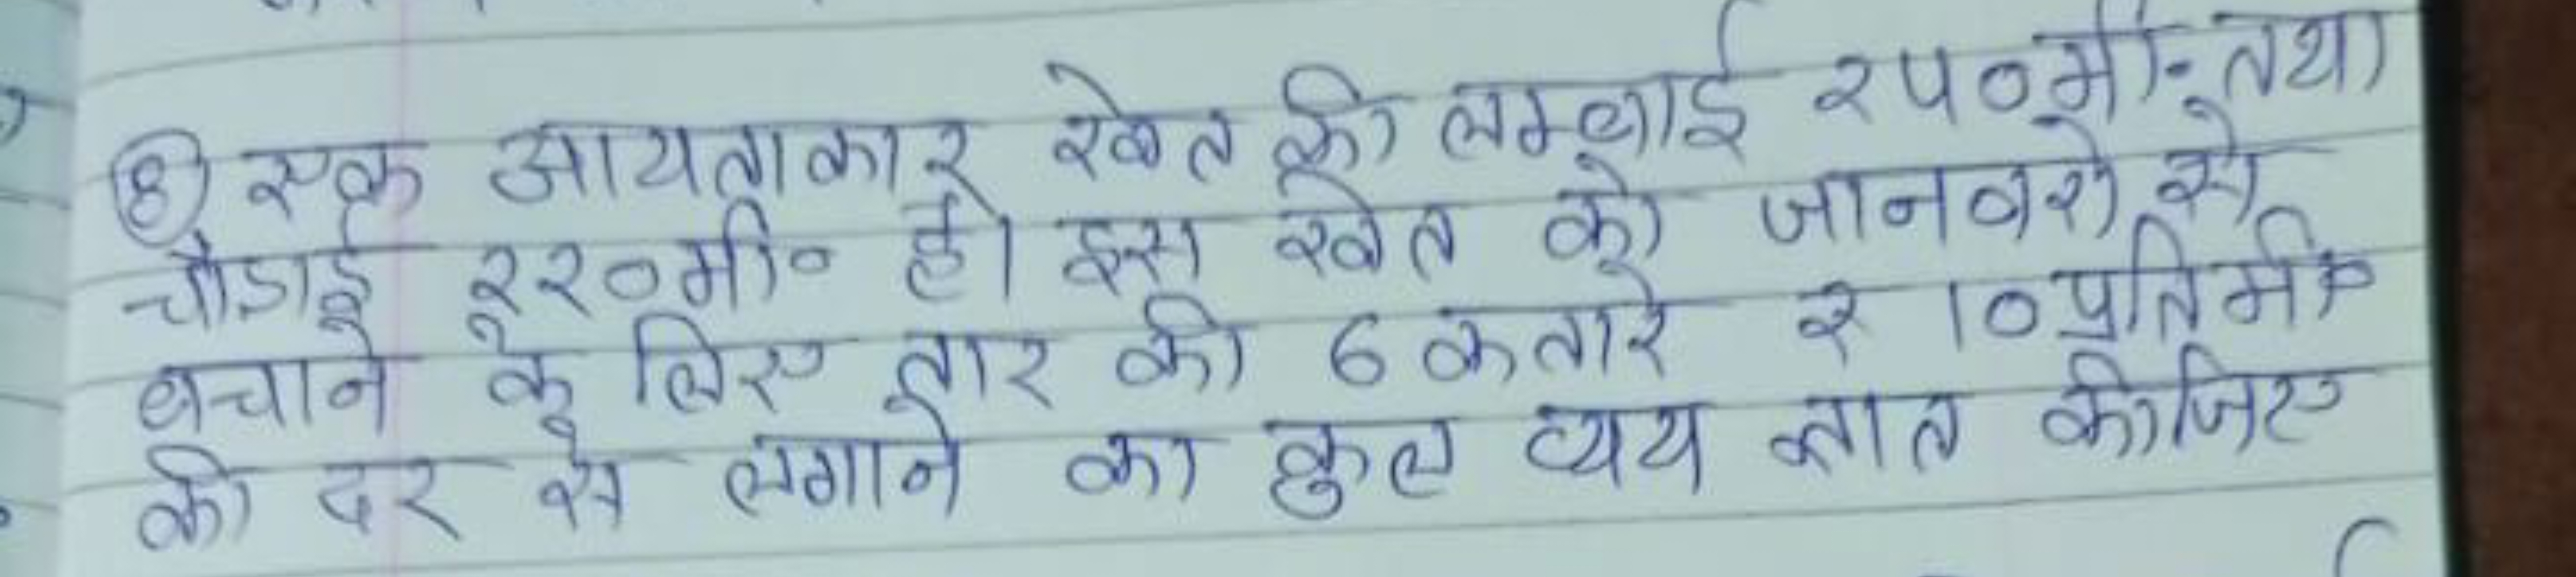 (8) एक आयताकार खेत की लम्बाई २५०मी॰ तथा
चौडाई २२०मी॰ है। इस खेत को जानवरो से
बचाने के लिए तार की 6 कतारे ₹ 10 प्रतिमी॰
की दर से लगाने का कुल व्यय ज्ञात कीजिए